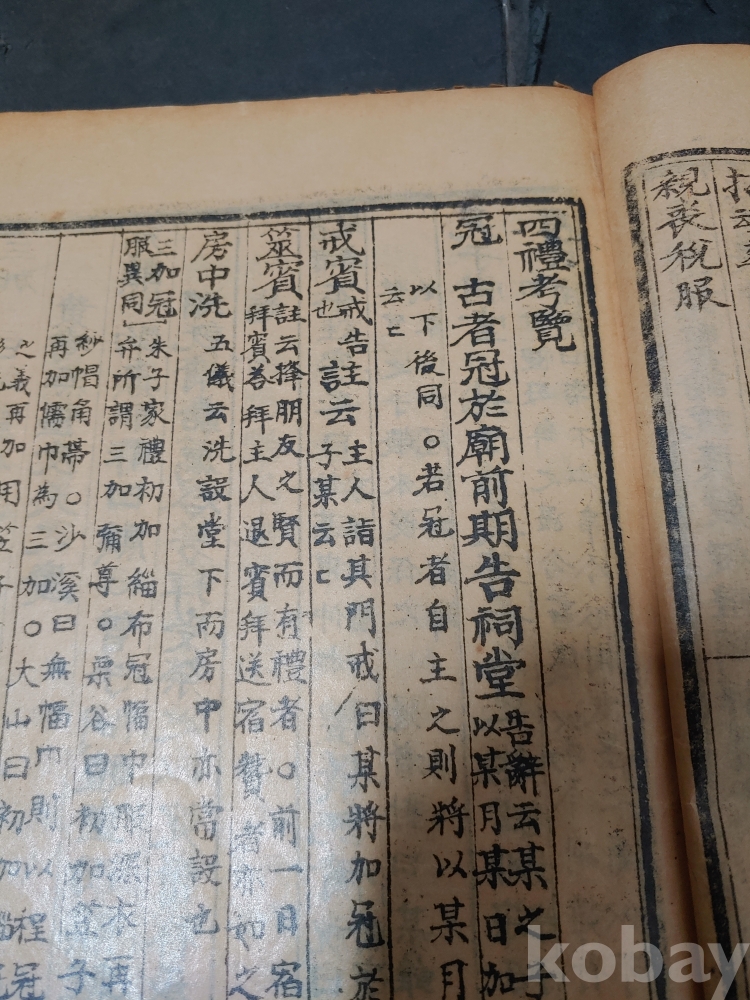 親喪稅服
四禮考覽
冠 古者冠於廟前期告祠堂 告辭云某之子
以某月某日加
以下後同○若冠者自主之則將以某月
云云
戒賓 戒告也 註云 主人詣其門戒曰某將加冠於
子某云云
筮賓 註云擇朋友之賢而有禮者○前一日宿
拜賓荅拜主人退賓拜送宿贊者亦如之
房中洗 五儀云洗設堂下而房中亦當設也
三加冠服異同 朱子家禮初加緇布冠幅巾服深衣再
弁所謂三加彌尊○栗谷曰初加笠子
紗帽角帶○沙溪曰無幅巾則以程冠
再加儒巾為三加○大山曰初加緇
之義再加用笠子
kobay